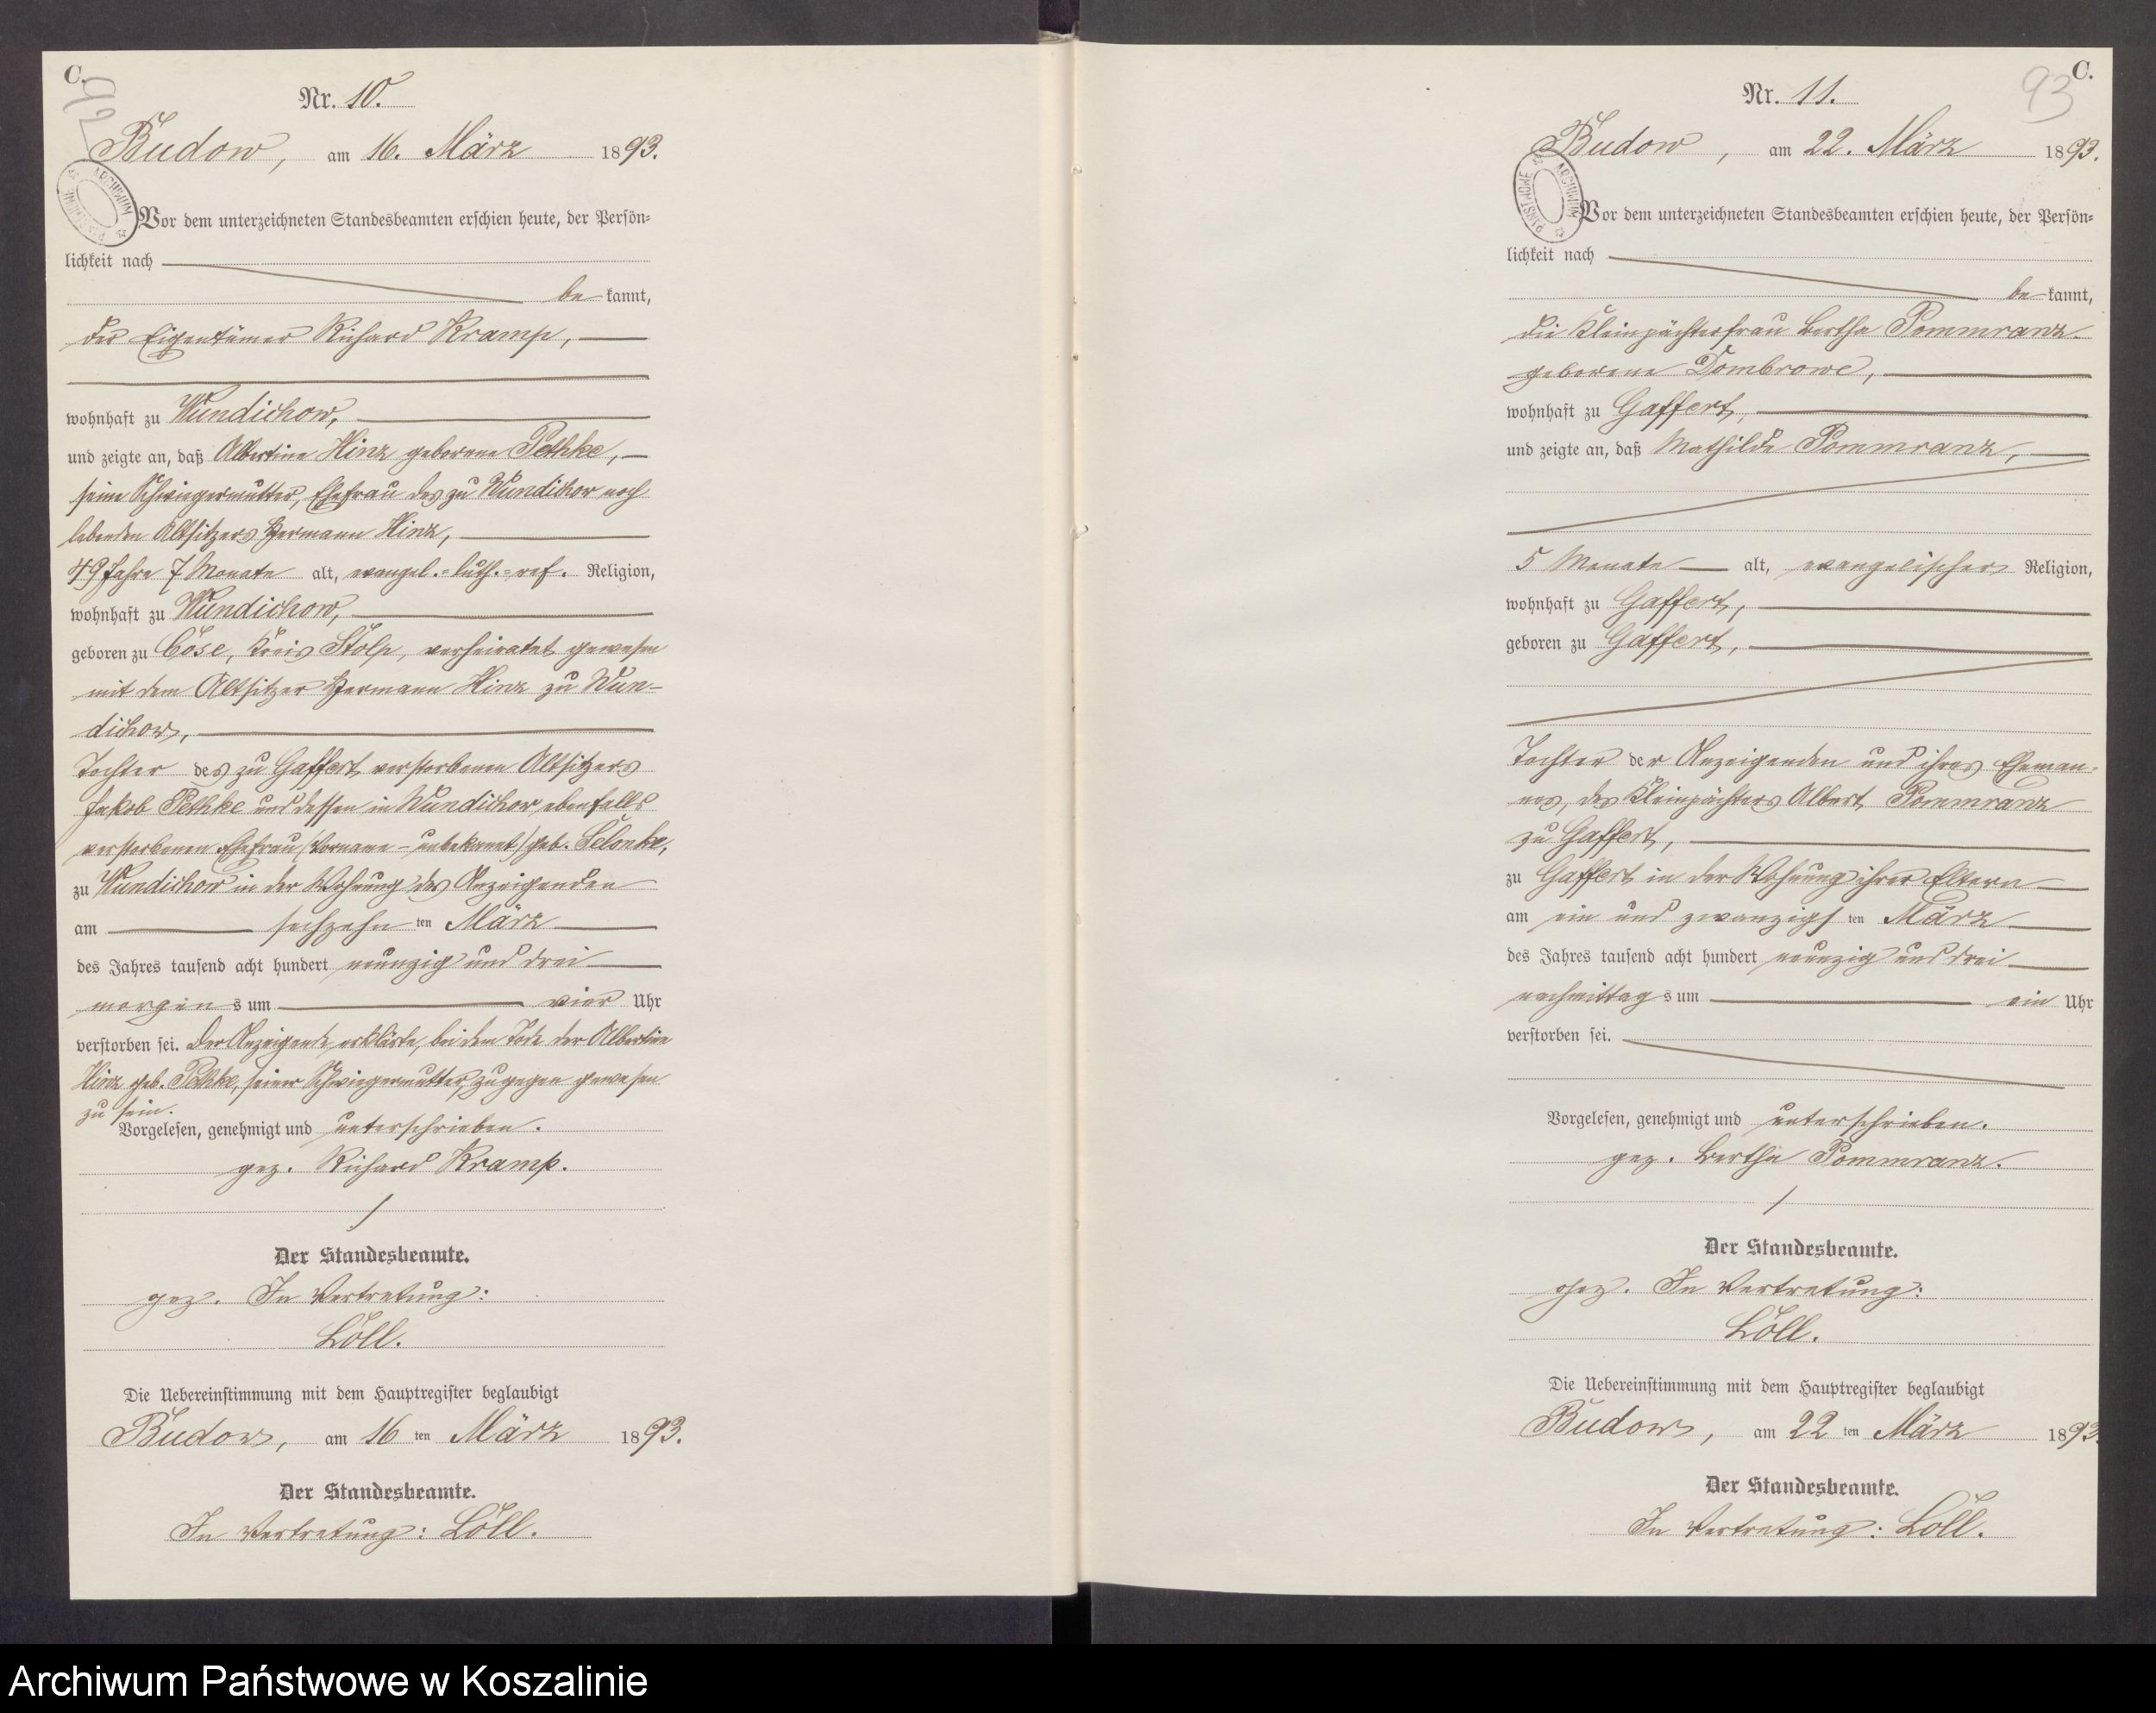 C.
92
Nr. 10.
Budow, am 16. März 1893.
ARCHIWUM PAŃSTWOWE
Vor dem unterzeichneten Standesbeamten erschien heute, der Persön-
lichkeit nach
be kannt,
der Eigentümer Richard Kramp,
wohnhaft zu Wundichow,
und zeigte an, daß Albertine Hinz geborene Pethke,
seine Schwiegermutter, Ehefrau des zu Wundichow noch
lebenden Altsitzers Hermann Hinz,
49 Jahre 7 Monate alt, evangel.-luth.-ref. Religion,
wohnhaft zu Wundichow,
geboren zu Cose, Kreis Stolp, verheiratet gewesen
mit dem Altsitzer Hermann Hinz zu Wun-
dichow,
Tochter des zu Gaffert verstorbenen Altsitzers
Jakob Pethke und dessen in Wundichow ebenfalls
verstorbenen Ehefrau (Vorname - unbekannt) geb. Selonke,
zu Wundichow in der Wohnung des Anzeigenden
am sechzehn ten März
des Jahres tausend acht hundert neunzig und drei
morgen s um vier Uhr
verstorben sei. Der Anzeigende erklärte, bei dem Tode der Albertine
Hinz geb. Pethke, seiner Schwiegermutter, zugegen gewesen
zu sein.
Vorgelesen, genehmigt und unterschrieben.
gez. Richard Kramp.
Der Standesbeamte.
gez. In Vertretung:
Löll.
Die Uebereinstimmung mit dem Hauptregister beglaubigt
Budow, am 16 ten März 1893.
Der Standesbeamte.
In Vertretung: Löll.
C.
93
Nr. 11.
Budow, am 22. März 1893.
ARCHIWUM PAŃSTWOWE
Vor dem unterzeichneten Standesbeamten erschien heute, der Persön-
lichkeit nach
be kannt,
die Kleinpächterfrau Bertha Pommranz
geborene Dombrowe,
wohnhaft zu Gaffert,
und zeigte an, daß Mathilde Pommranz,
5 Monate alt, evangelischer Religion,
wohnhaft zu Gaffert,
geboren zu Gaffert,
Tochter der Anzeigenden und ihres Eheman-
nes, des Kleinpächters Albert Pommranz
zu Gaffert,
zu Gaffert in der Wohnung ihrer Eltern
am ein und zwanzigs ten März
des Jahres tausend acht hundert neunzig und drei
nachmittag s um ein Uhr
verstorben sei.
Vorgelesen, genehmigt und unterschrieben.
gez. Bertha Pommranz.
Der Standesbeamte.
gez. In Vertretung:
Löll.
Die Uebereinstimmung mit dem Hauptregister beglaubigt
Budow, am 22 ten März 1893
Der Standesbeamte.
In Vertretung: Löll.
Archiwum Państwowe w Koszalinie